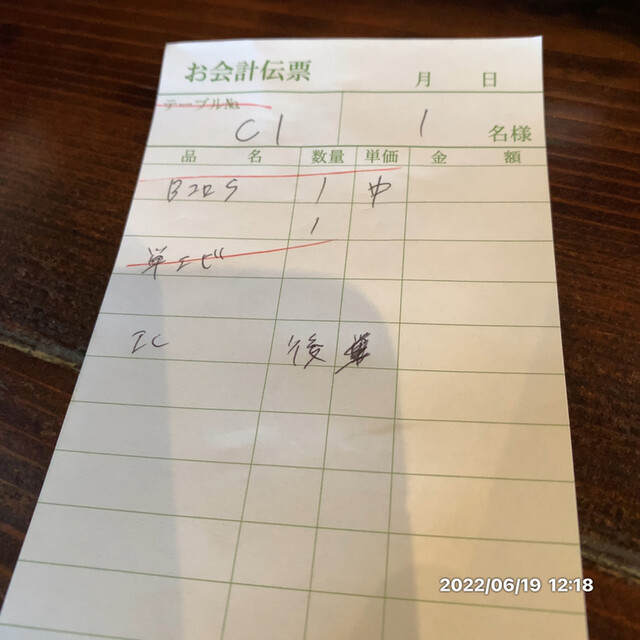 お会計伝票 月 日
テーブル№ C1 1 名様
品 名 数量 単価 金 額
BコロS 1 中
1
単エビ
IC 後
2022/06/19 12:18